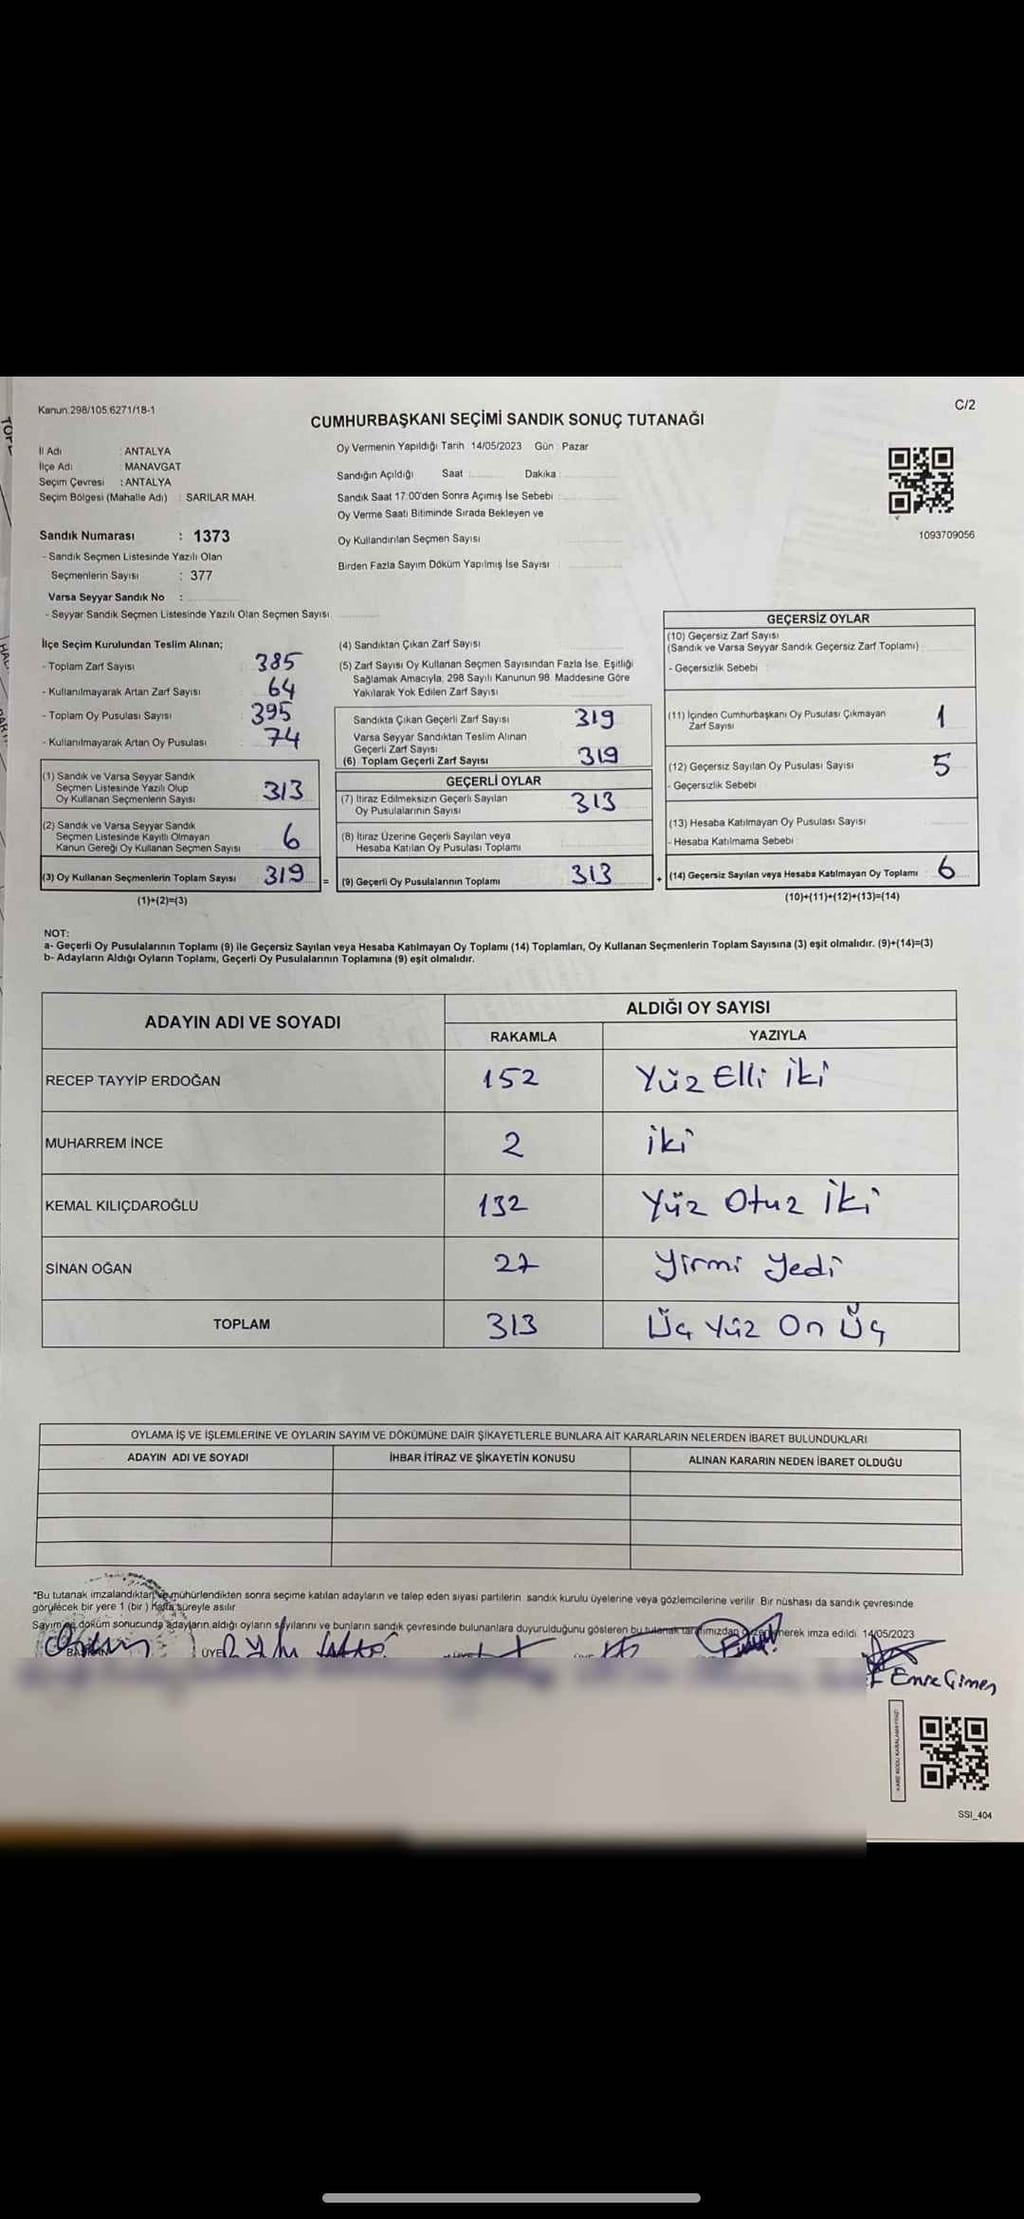 Kanun.298/105.6271/18-1
C/2
CUMHURBAŞKANI SEÇİMİ SANDIK SONUÇ TUTANAĞI
İl Adı : ANTALYA
İlçe Adı : MANAVGAT
Seçim Çevresi : ANTALYA
Seçim Bölgesi (Mahalle Adı) : SARILAR MAH.
Oy Vermenin Yapıldığı Tarih 14/05/2023 Gün : Pazar
Sandığın Açıldığı Saat : Dakika :
Sandık Saat 17:00'den Sonra Açımış İse Sebebi :
Oy Verme Saati Bitiminde Sırada Bekleyen ve
Oy Kullandırılan Seçmen Sayısı
Birden Fazla Sayım Döküm Yapılmış İse Sayısı
1093709056
Sandık Numarası : 1373
- Sandık Seçmen Listesinde Yazılı Olan
Seçmenlerin Sayısı : 377
Varsa Seyyar Sandık No :
- Seyyar Sandık Seçmen Listesinde Yazılı Olan Seçmen Sayısı
İlçe Seçim Kurulundan Teslim Alınan;
- Toplam Zarf Sayısı 385
- Kullanılmayarak Artan Zarf Sayısı 64
- Toplam Oy Pusulası Sayısı 395
- Kullanılmayarak Artan Oy Pusulası 74
(1) Sandık ve Varsa Seyyar Sandık
Seçmen Listesinde Yazılı Olup
Oy Kullanan Seçmenlerin Sayısı 313
(2) Sandık ve Varsa Seyyar Sandık
Seçmen Listesinde Kayıtlı Olmayan
Kanun Gereği Oy Kullanan Seçmen Sayısı 6
(3) Oy Kullanan Seçmenlerin Toplam Sayısı 319 =
(1)+(2)=(3)
(4) Sandıktan Çıkan Zarf Sayısı
(5) Zarf Sayısı Oy Kullanan Seçmen Sayısından Fazla İse, Eşitliği
Sağlamak Amacıyla, 298 Sayılı Kanunun 98. Maddesine Göre
Yakılarak Yok Edilen Zarf Sayısı
Sandıkta Çıkan Geçerli Zarf Sayısı 319
Varsa Seyyar Sandıktan Teslim Alınan
Geçerli Zarf Sayısı
(6) Toplam Geçerli Zarf Sayısı 319
GEÇERLİ OYLAR
(7) İtiraz Edilmeksizin Geçerli Sayılan
Oy Pusulalarının Sayısı 313
(8) İtiraz Üzerine Geçerli Sayılan veya
Hesaba Katılan Oy Pusulası Toplamı
(9) Geçerli Oy Pusulalarının Toplamı 313 +
GEÇERSİZ OYLAR
(10) Geçersiz Zarf Sayısı
(Sandık ve Varsa Seyyar Sandık Geçersiz Zarf Toplamı)
- Geçersizlik Sebebi
(11) İçinden Cumhurbaşkanı Oy Pusulası Çıkmayan
Zarf Sayısı 1
(12) Geçersiz Sayılan Oy Pusulası Sayısı 5
- Geçersizlik Sebebi
(13) Hesaba Katılmayan Oy Pusulası Sayısı
- Hesaba Katılmama Sebebi
(14) Geçersiz Sayılan veya Hesaba Katılmayan Oy Toplamı 6
(10)+(11)+(12)+(13)=(14)
NOT:
a- Geçerli Oy Pusulalarının Toplamı (9) ile Geçersiz Sayılan veya Hesaba Katılmayan Oy Toplamı (14) Toplamları, Oy Kullanan Seçmenlerin Toplam Sayısına (3) eşit olmalıdır. (9)+(14)=(3)
b- Adayların Aldığı Oyların Toplamı, Geçerli Oy Pusulalarının Toplamına (9) eşit olmalıdır.
ADAYIN ADI VE SOYADI
ALDIĞI OY SAYISI
RAKAMLA YAZIYLA
RECEP TAYYİP ERDOĞAN 152 Yüz Elli iki
MUHARREM İNCE 2 iki
KEMAL KILIÇDAROĞLU 132 Yüz Otuz İki
SİNAN OĞAN 27 Yirmi Yedi
TOPLAM 313 Üç Yüz On Üç
OYLAMA İŞ VE İŞLEMLERİNE VE OYLARIN SAYIM VE DÖKÜMÜNE DAİR ŞİKAYETLERLE BUNLARA AİT KARARLARIN NELERDEN İBARET BULUNDUKLARI
ADAYIN ADI VE SOYADI İHBAR İTİRAZ VE ŞİKAYETİN KONUSU ALINAN KARARIN NEDEN İBARET OLDUĞU
*Bu tutanak imzalandıktan ve mühürlendikten sonra seçime katılan adayların ve talep eden siyasi partilerin sandık kurulu üyelerine veya gözlemcilerine verilir. Bir nüshası da sandık çevresinde
görülecek bir yere 1 (bir) hafta süreyle asılır.
Sayım ve döküm sonucunda adayların aldığı oyların sayılarını ve bunların sandık çevresinde bulunanlara duyurulduğunu gösteren bu tutanak tarafımızdan düzenlenerek imza edildi. 14/05/2023
BAŞKAN ÜYE
Emre Çimen
SSI_404